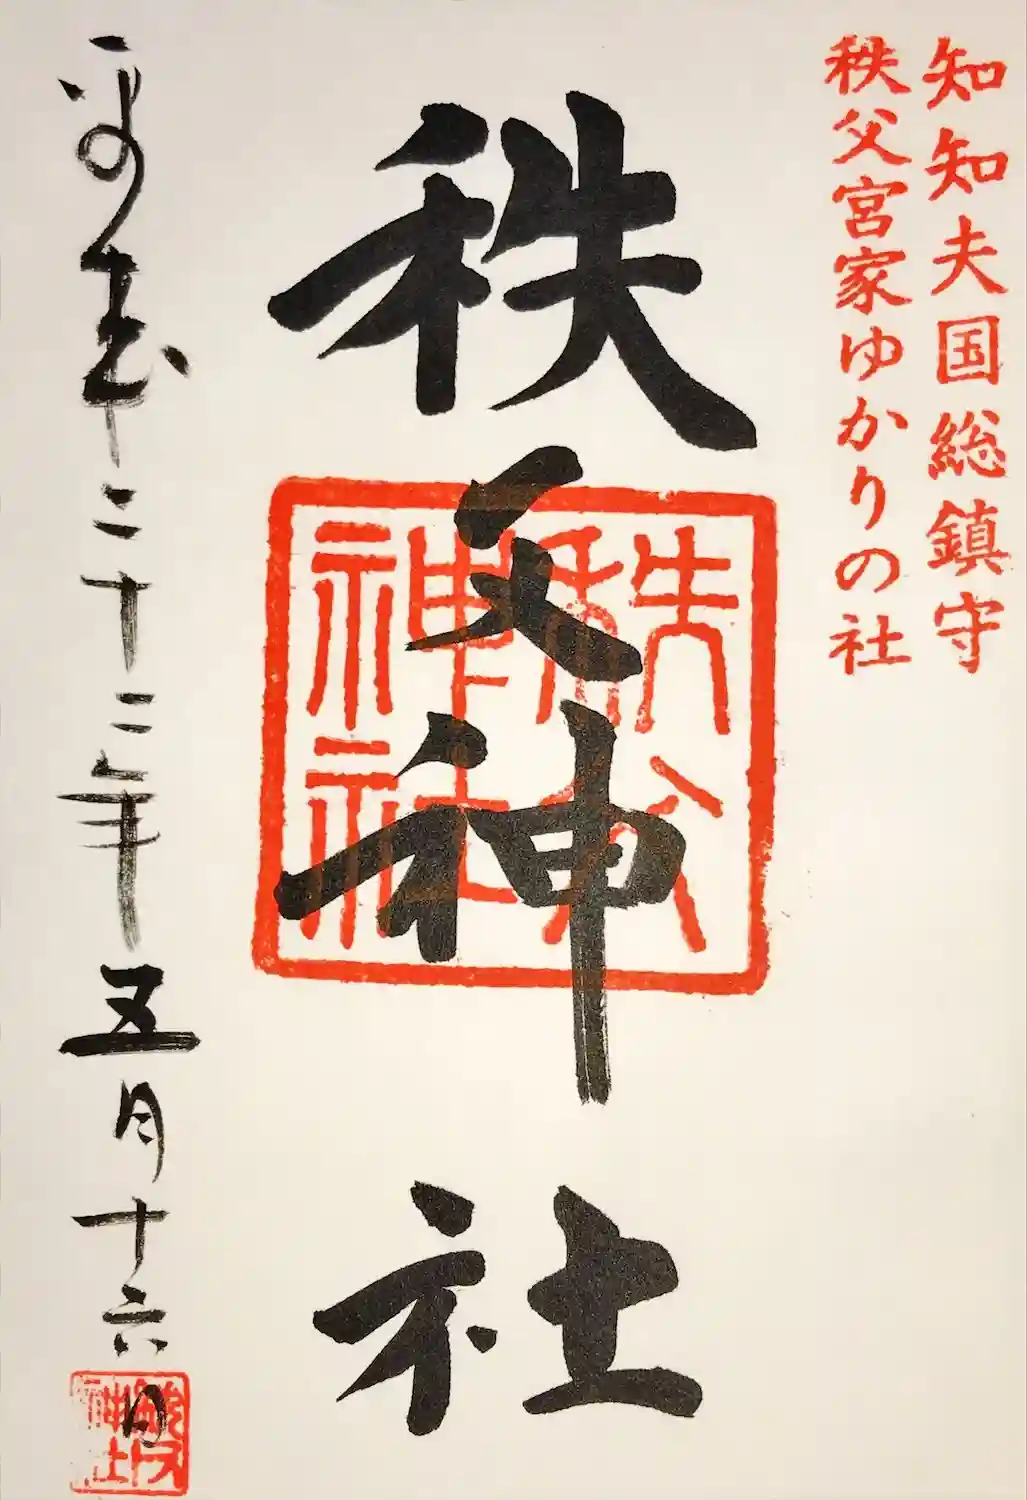 知知夫国総鎮守
秩父宮家ゆかりの社
秩父神社
秩父神社
平成二十二年五月十六日